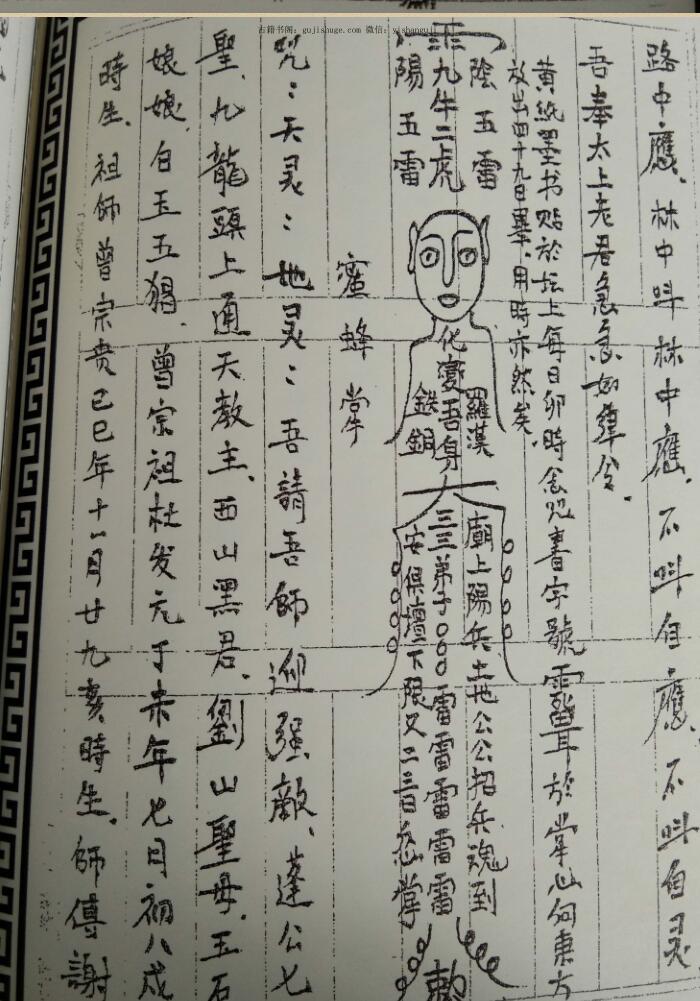 古籍书阁: gujishuge.com 微信: yishanguji
路中應、林中叫林中應、不叫自應、不叫自灵
吾奉太上老君急急如律令、
黄纸墨书贴於坛上每日卯時念咒書字號於掌心向東方
放出四十九日畢、用時亦然矣、
陰五雷
九牛二虎
陽五雷
化變吾身
羅漢
鉄銅
廟上陽兵土地公公招兵魂到
三三弟子〇〇〇雷雷雷雷雷
安俱壇下限又二三日
勅
蜜蜂掌
咒：天灵：地灵：吾請吾師迎强敵、蓬公七
聖、九龍頭上通天教主、西山黑君、劉山聖母、玉石
娘娘、白玉五猖、曾宗祖杜发元于未年七月初八戌
時生、祖師曾宗贵己巳年十一月廿九亥時生、師傅謝